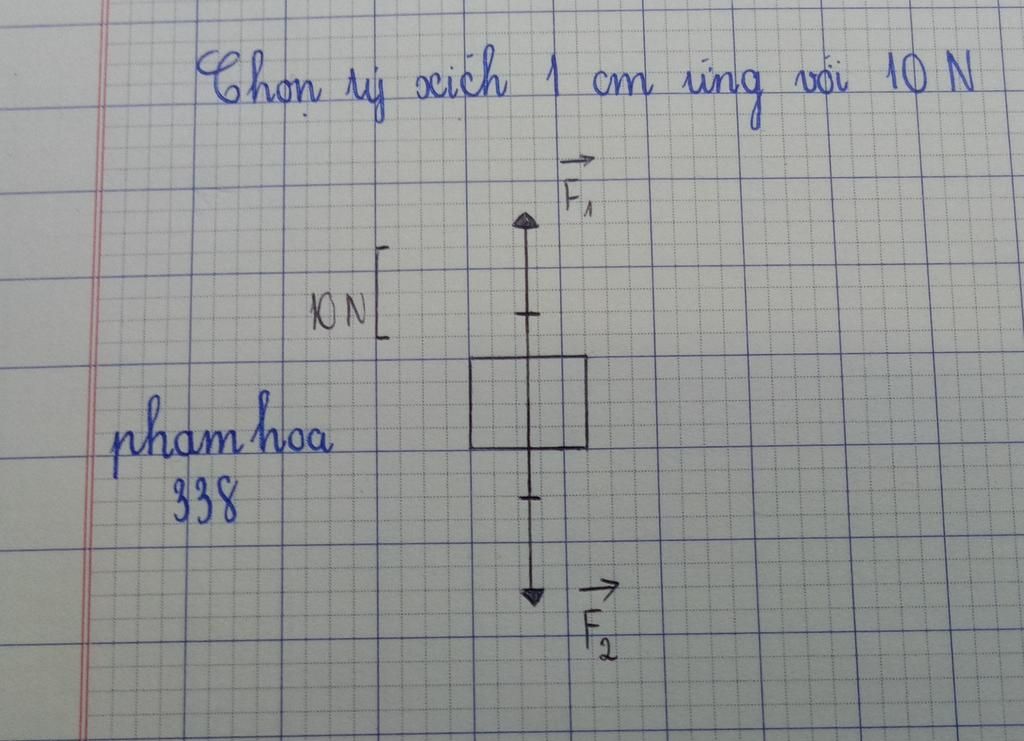 Chọn tỷ xích 1 cm ứng với 10 N
F₁
10 N
phamhoa
338
F₂